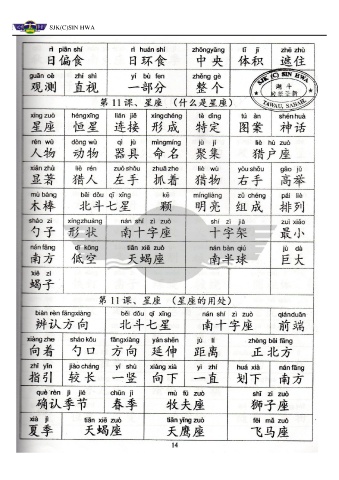 SJK(C)SIN HWA
rì piān shí rì huán shí zhōngyāng tǐ jī zhē zhù
日偏食 日环食 中央 体积 遮住
guān cè zhí shì yí bù fen zhěng gè
观测 直视 一部分 整个
SJK (C) SIN HWA
TAWAU, SABAH.
第11课、星座 （什么是星座）
xīng zuò héngxīng lián jiē xíngchéng tè dìng tú àn shén huà
星座 恒星 连接 形成 特定 图案 神话
rén wù dòng wù qì jù mìngmíng jù jí liè hù zuò
人物 动物 器具 命名 聚集 猎户座
xiǎn zhù liè rén zuǒ shǒu zhuā zhe liè wù yòu shǒu gāo jǔ
显著 猎人 左手 抓着 猎物 右手 高举
mù bàng běi dǒu qī xīng kē míngliàng zǔ chéng pái liè
木棒 北斗七星 颗 明亮 组成 排列
sháo zi xíngzhuàng nán shí zì zuò shí zì jià zuì xiǎo
勺子 形状 南十字座 十字架 最小
nán fāng dī kōng tiān xiē zuò nán bàn qiú jù dà
南方 低空 天蝎座 南半球 巨大
xiē zi
蝎子
第11课、星座 （星座的用处）
biàn rèn fāngxiàng běi dǒu qī xīng nán shí zì zuò qiánduān
辨认方向 北斗七星 南十字座 前端
xiàng zhe sháo kǒu fāngxiàng yán shēn jù lí zhèng běi fāng
向着 勺口 方向 延伸 距离 正北方
zhǐ yǐn jiào cháng yí shù xiàng xià yì zhí huá xià nán fāng
指引 较长 一竖 向下 一直 划下 南方
què rèn jì jié chūn jì mù fū zuò shī zi zuò
确认季节 春季 牧夫座 狮子座
xià jì tiān xiē zuò tiān yīng zuò fēi mǎ zuò
夏季 天蝎座 天鹰座 飞马座
14